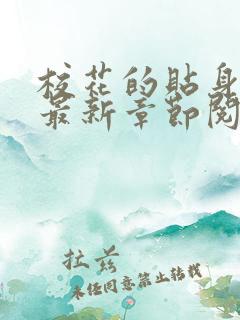 校花的贴身
最新章节阅
拉兹
未经同意禁止转载